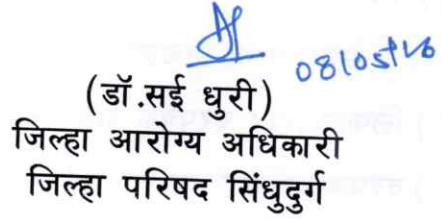 (डॉ.सई धुरी)
जिल्हा आरोग्य अधिकारी
जिल्हा परिषद सिंधुदुर्ग